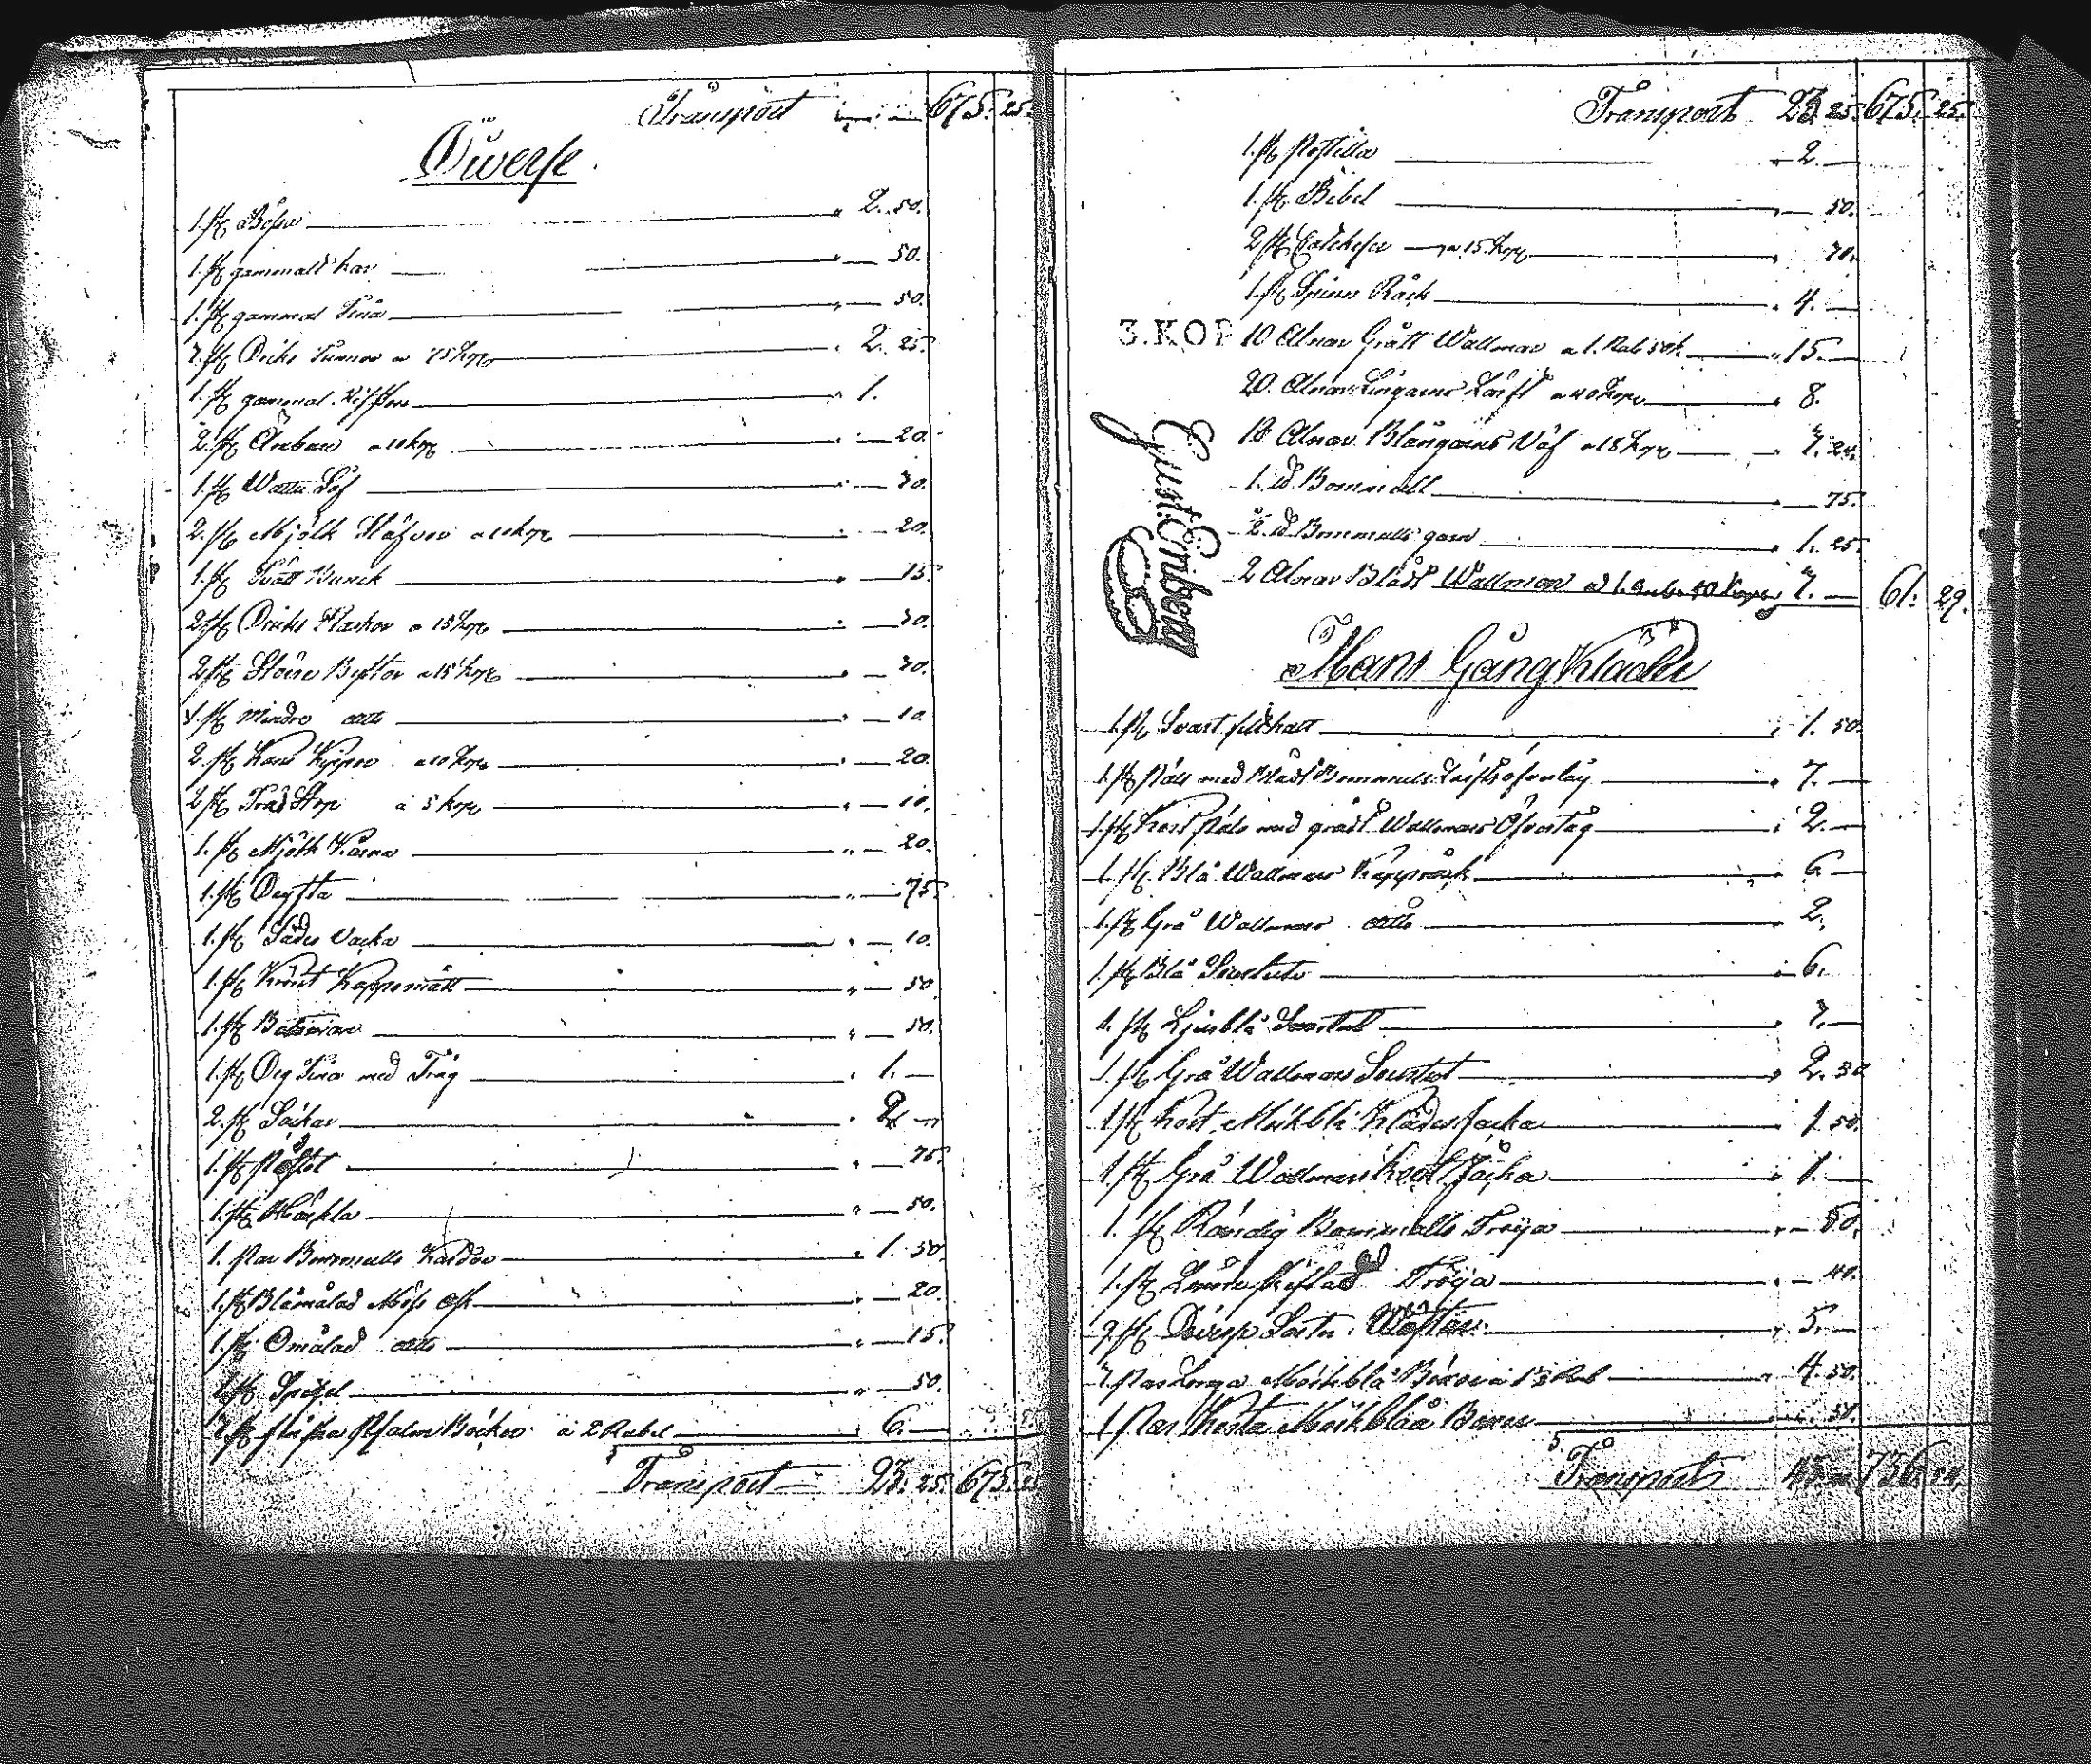 Transport 675. 25.
Diverse
1. st Bössa 2. 50.
1. st gammalt kar 50.
1. st gammal Tina 50.
3. st Dricks Tunnor a 75 kop 2. 25.
1. st gammal 1.
2. st Ämbare a 10 kop 20.
1. st Watten Så 30.
2. st Mjölk Stäfvor a 10 kop 20.
1. st Tvätt Bunck 15
2 st Dricks Flaskor a 15 kop 30.
2 st Större Byttor a 15 kop 30.
1. st Mindre ditto 10.
2. st a 10 kop 20.
2 st Träd Stop a 5 kop 10.
1. st Mjölk 20.
1. st 75
1. st Sädes 10.
1. st Kappemått 50
1. st Betsman 50.
1. st Deg Tina med Tråg 1.
2. st Säckar 2
1. st 75
1. st Häckla 50.
1. Par Bommulls Kardor 1. 50.
1. st Blåmålad ask 20.
1. st Omålad ditto 15
1. st Spegel 50.
3. st Psalm Böcker a 2 Rubel 6.
Transport 23. 25. 675. 25
Transport 23. 25. 675. 25.
1. st Postilla 2.
1. st Bibel 50.
2 st Catekeser a 15 kop 30.
1. st Spinn Råck 4.
3. KOP
10 Alnar Grått Wallmar a 1. Rub 50 k 15.
20. Alnar Lingarns Lärft a 40 kop 8.
18 Alnar Blångarns Väf a 18 kop 3. 24.
1. ℔ Bommull 75.
2. ℔ Bommulls garn 1. 25.
2 Alnar Blådt Wallmar a 1. Rub. 50 Kop 3. 61. 29.
Gust. Enbem
Mans Gång Kläder
1. st Svart filthatt 1. 50.
1. st Päls med Blådt Bommulls Lärfts öfverlag 7.
1. st Kort päls med grådt Wallmars Öfvertåg 2.
1. st Blå Wallmars Kapprock 6
1. st Grå Wallmars ditto 2.
1. st Blå Surtut 6.
1. st Ljusblå Surtut 3.
1. st Grå Wallmars Surtut 2. 50
1 st Kort Mörkblå Klädes Jacka 1 50.
1. st Grå Wallmars Kort Jacka 1.
1. st Randig Bommulls Tröja 50.
1. st Tröja 40.
st Diverse Sorter Wästar 5.
3. Par Långa Mörkblå Böxor a 1½ Rub 4. 50.
1 Par Korta Mörkblåa Boxor 50.
Transport 736.